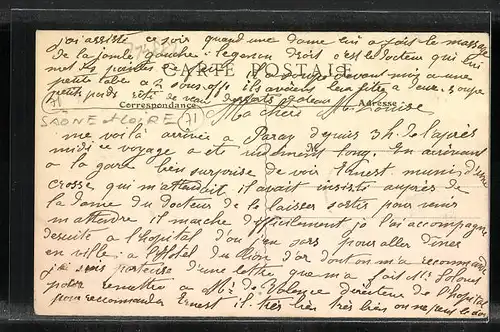 j'ai assisté ce soir quand une dame lui a fait le massage
de la jambe gauche : le genou droit c'est le docteur qui lui
met les pointes de
CARTE POSTALE
petite table à 2 sous off ils avaient leur
petits poids rôti de veau
Correspondance
Adresse
Ma chère M. Louise
SAONE & LOIRE (71)
71
me voilà arrivée à Paray depuis 3h de l'après
midi ce voyage a été rudement long En arrivant
à la gare bien surprise de voir Ernest muni d'une
crosse qui m'attendait, il avait insisté auprès de
la dame du docteur de le laisser sortir pour venir
m'attendre il marche difficilement je l'ai accompagné
desuite à l'hopital d'ou j'en sors pour aller dîner
en ville ; à l'Hôtel du Lion d'or dont on m'a recommandé
j'ai suis porteuse d'une lettre que m'a fait Mr
pour remettre à Mr de Valence directeur de l'hopital
pour recommander Ernest il très très bien on ne peut le